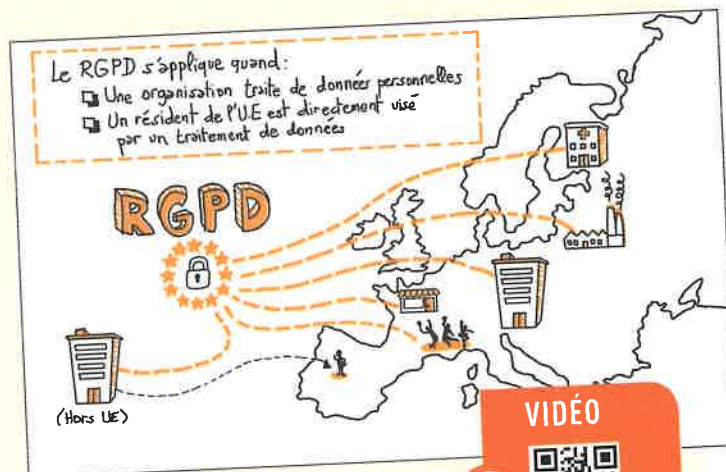 Le RGPD s'applique quand:
Une organisation traite de données personnelles
Un résident de l'U.E est directement visé
par un traitement de données
RGPD
(Hors UE)
VIDÉO